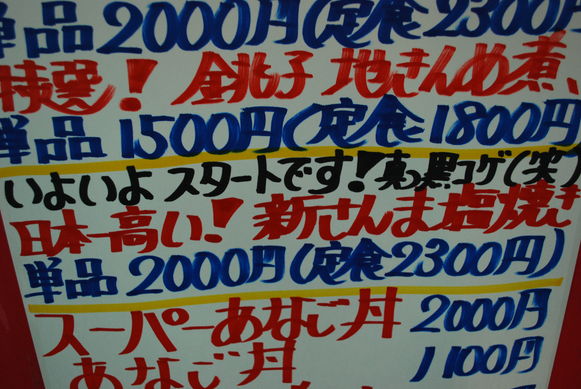 単品2000円(定食2300円
特選!銚子 地きんめ煮、
単品1500円(定食1800円
いよいよ スタートです!真っ黒コゲ(笑)
日本一高い!新さんま塩焼き
単品2000円(定食2300円)
スーパーあなご丼 2000円
あなご丼 1100円